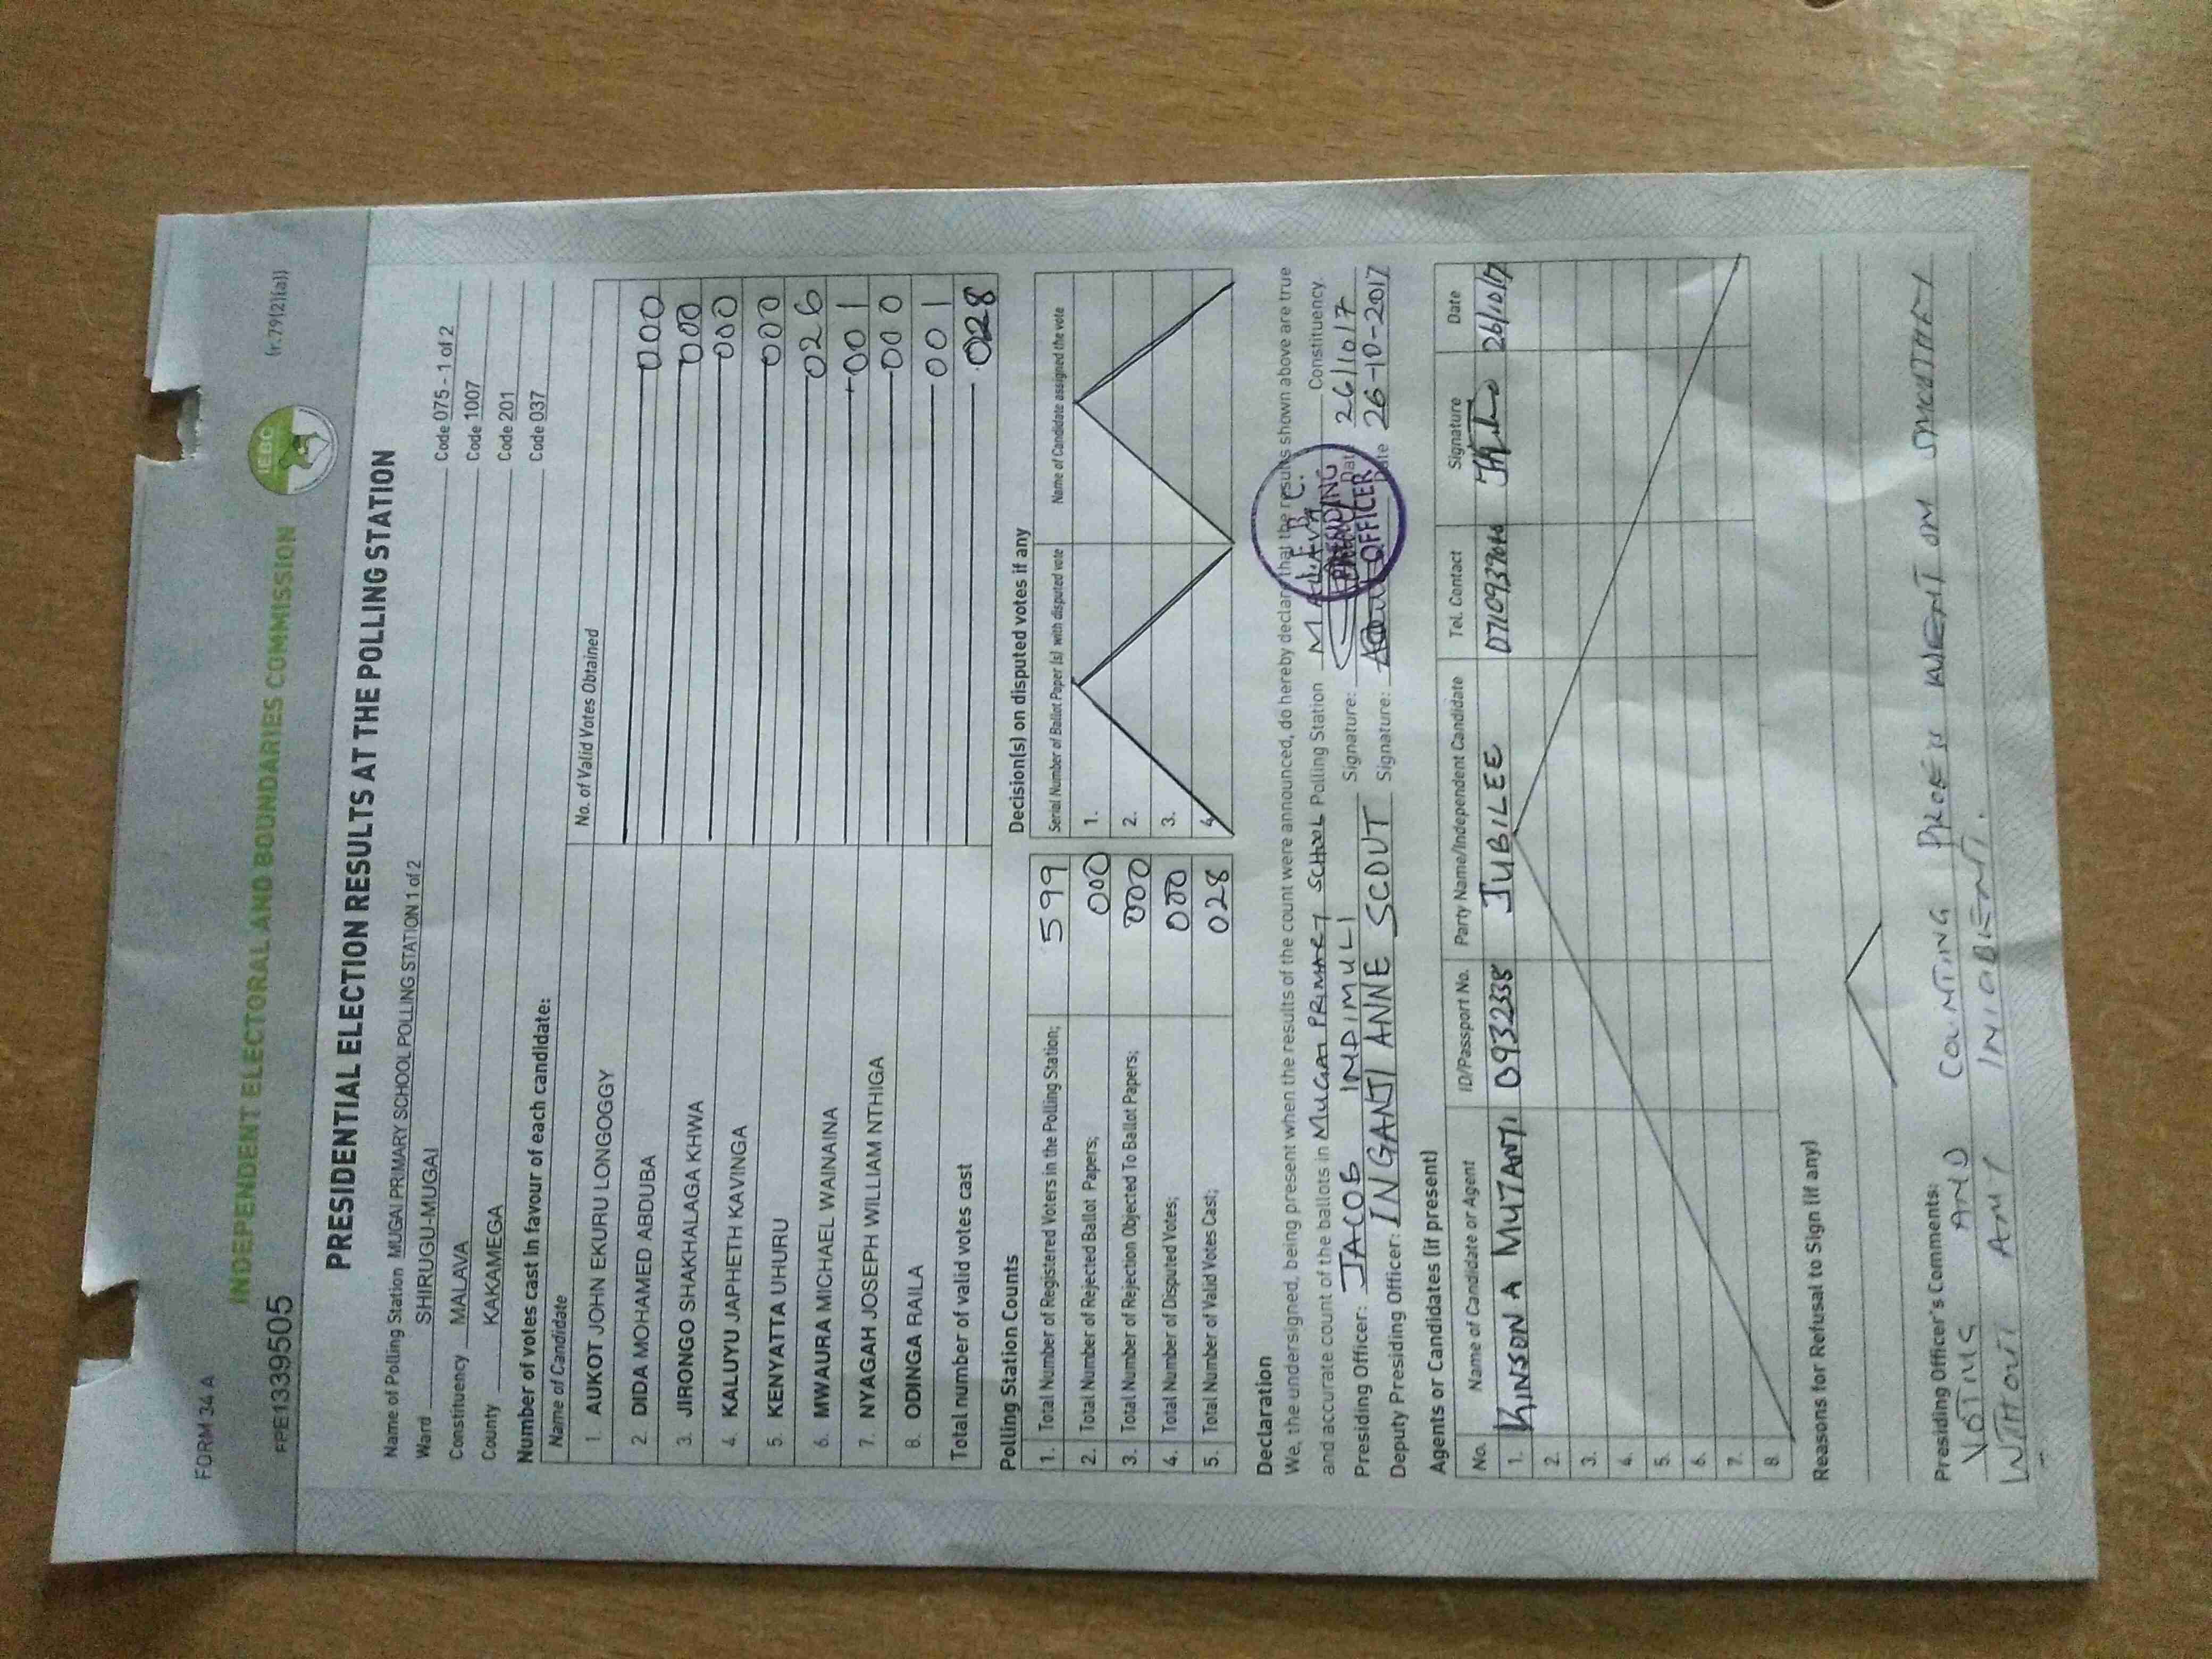 FORM 34 A
(r.79(2)(a))
INDEPENDENT ELECTORAL AND BOUNDARIES COMMISSION
IEBC
PRE1339505
PRESIDENTIAL ELECTION RESULTS AT THE POLLING STATION
Name of Polling Station MUGAI PRIMARY SCHOOL POLLING STATION 1 of 2 Code 075 - 1 of 2
Ward SHIRUGU-MUGAI Code 1007
Constituency MALAVA Code 201
County KAKAMEGA Code 037
Number of votes cast in favour of each candidate:
Name of Candidate No. of Valid Votes Obtained
1. AUKOT JOHN EKURU LONGOGGY 000
2. DIDA MOHAMED ABDUBA 000
3. JIRONGO SHAKHALAGA KHWA 000
4. KALUYU JAPHETH KAVINGA 000
5. KENYATTA UHURU 026
6. MWAURA MICHAEL WAINAINA 001
7. NYAGAH JOSEPH WILLIAM NTHIGA 000
8. ODINGA RAILA 001
Total number of valid votes cast 028
Polling Station Counts
1. Total Number of Registered Voters in the Polling Station; 599
2. Total Number of Rejected Ballot Papers; 000
3. Total Number of Rejection Objected To Ballot Papers; 000
4. Total Number of Disputed Votes; 000
5. Total Number of Valid Votes Cast; 028
Decision(s) on disputed votes if any
Serial Number of Ballot Paper (s) with disputed vote Name of Candidate assigned the vote
1.
2.
3.
4.
Declaration
We, the undersigned, being present when the results of the count were announced, do hereby declare that the results shown above are true
and accurate count of the ballots in MUGAI PRIMARY SCHOOL Polling Station MALAVA Constituency.
Presiding Officer: JACOB INDIMULI Signature: Date 26/10/7
Deputy Presiding Officer: INGANJI ANNE SCOUT Signature: Date 26-10-2017
I.E.B.C.
PRESIDING
OFFICER
Agents or Candidates (if present)
No. Name of Candidate or Agent ID/Passport No. Party Name/Independent Candidate Tel. Contact Signature Date
1. KINSON A MUTANTI 0932338 JUBILEE 26/10/17
2.
3.
4.
5.
6.
7.
8.
Reasons for Refusal to Sign (if any)
Presiding Officer's Comments: COUNTING WENT ON
VOTING AND
WITHOUT ANY